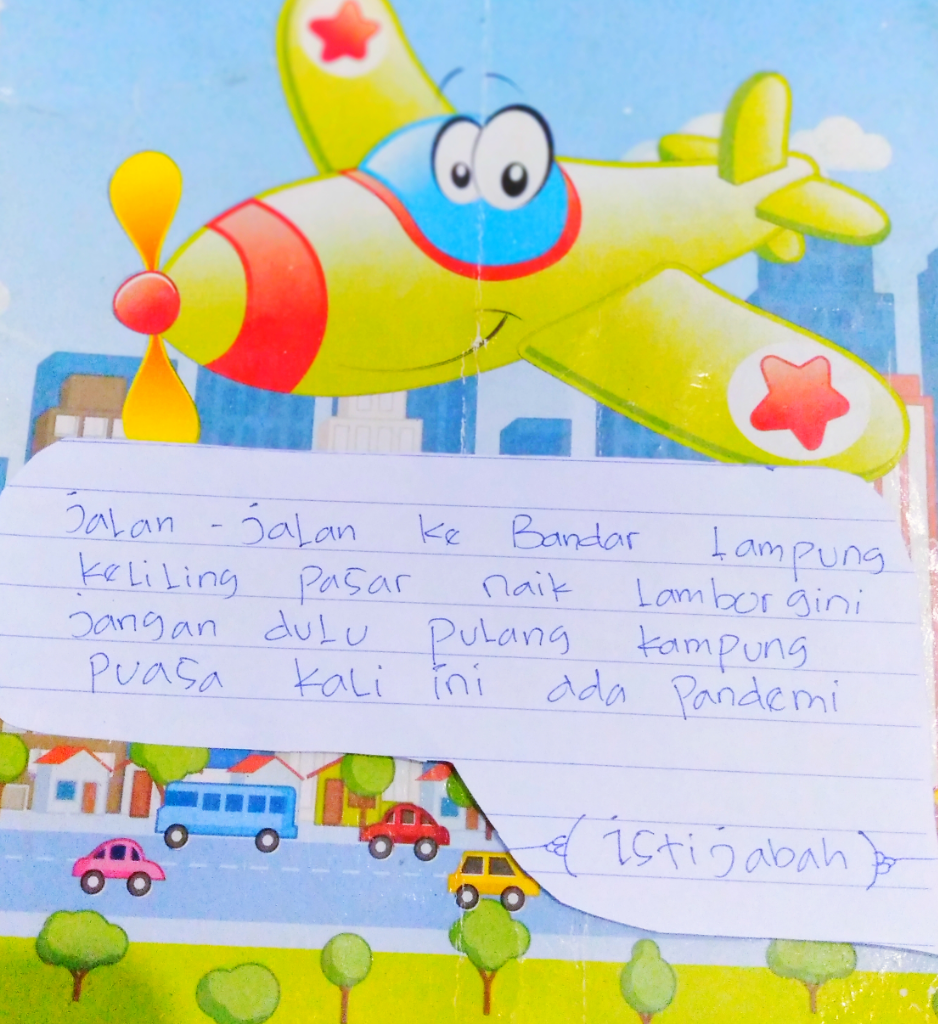 Jalan - jalan ke Bandar Lampung
keliling pasar naik Lamborgini
jangan dulu pulang kampung
puasa kali ini ada pandemi
(istijabah)